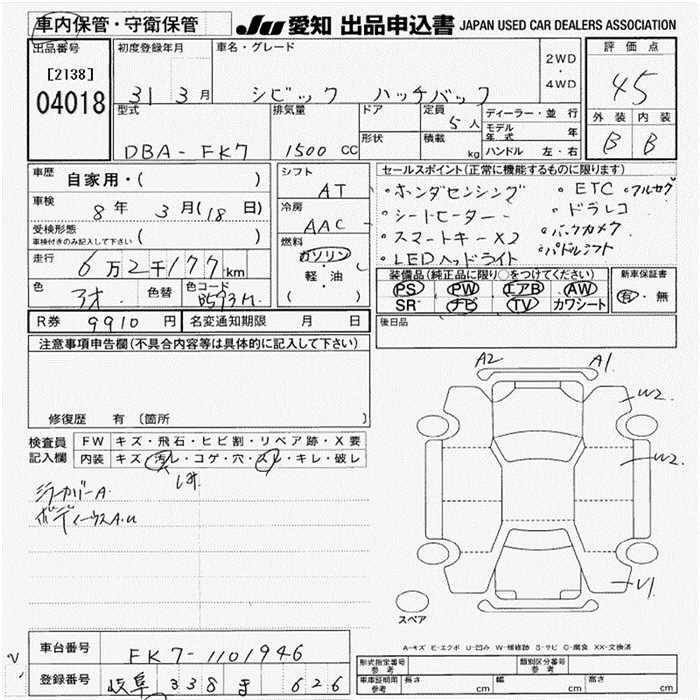 車内保管・守衛保管
JU 愛知 出品申込書 JAPAN USED CAR DEALERS ASSOCIATION
出品番号
[2138]
04018
初度登録年月
31 3月
車名・グレード
シビック ハッチバック
2WD
・
4WD
評価点
45
外装 内装
B B
型式
DBA-FK7
排気量
1500 CC
ドア
形状
定員
5人
積載
kg
ディーラー・並行
モデル年式 年
ハンドル 左・右
車歴
自家用・( )
車検
8年 3月(18日)
受検形態
車検付きのみ記入して下さい ( )
走行
6万2千177km
色
色替
色コード
B593M
シフト
AT
冷房
AAC
燃料
ガソリン
・
軽・油
( )
セールスポイント(正常に機能するものに限ります)
・ホンダセンシング ・ETC ・フルセグ
・シートヒーター ・ドラレコ
・スマートキーX2 ・バックカメラ
・LEDヘッドライト ・パドルシフト
装備品(純正品に限り○をつけてください)
PS PW エアB AW
SR ナビ TV カワシート
新車保証書
有・無
後日品
R券 9910円
名変通知期限 月 日
注意事項申告欄(不具合内容等は具体的に記入して下さい)
修復歴 有(箇所 )
検査員記入欄
FW キズ・飛石・ヒビ割・リペア跡・X要
内装 キズ・汚レ・コゲ・穴・スレ・キレ・破レ
ミラーカバーA
A2 A1
W2
W2
U1
スペア
A-キズ E-エクボ U-凹み W-補修跡 S-サビ C-腐食 XX-交換済
車台番号
FK7-1101946
登録番号
岐阜 338 ま 626
形式指定番号 参考
類別区分番号 参考
車庫証明用 参考
長さ cm 幅 cm 高さ cm